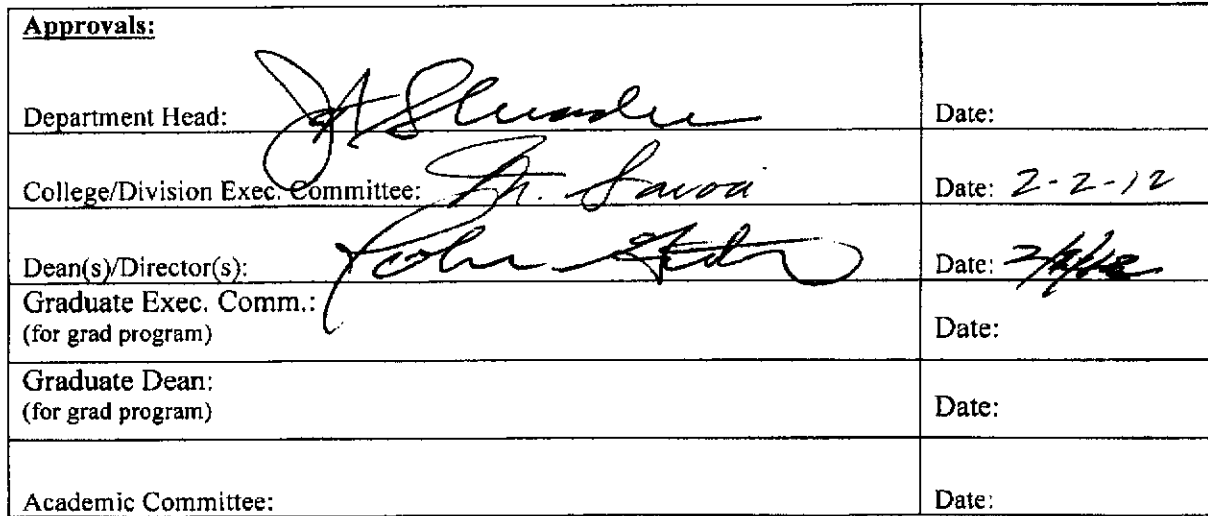 Approvals:
Department Head: Date:
College/Division Exec. Committee: Date: 2-2-12
Dean(s)/Director(s): Date:
Graduate Exec. Comm.:
(for grad program) Date:
Graduate Dean:
(for grad program) Date:
Academic Committee: Date: